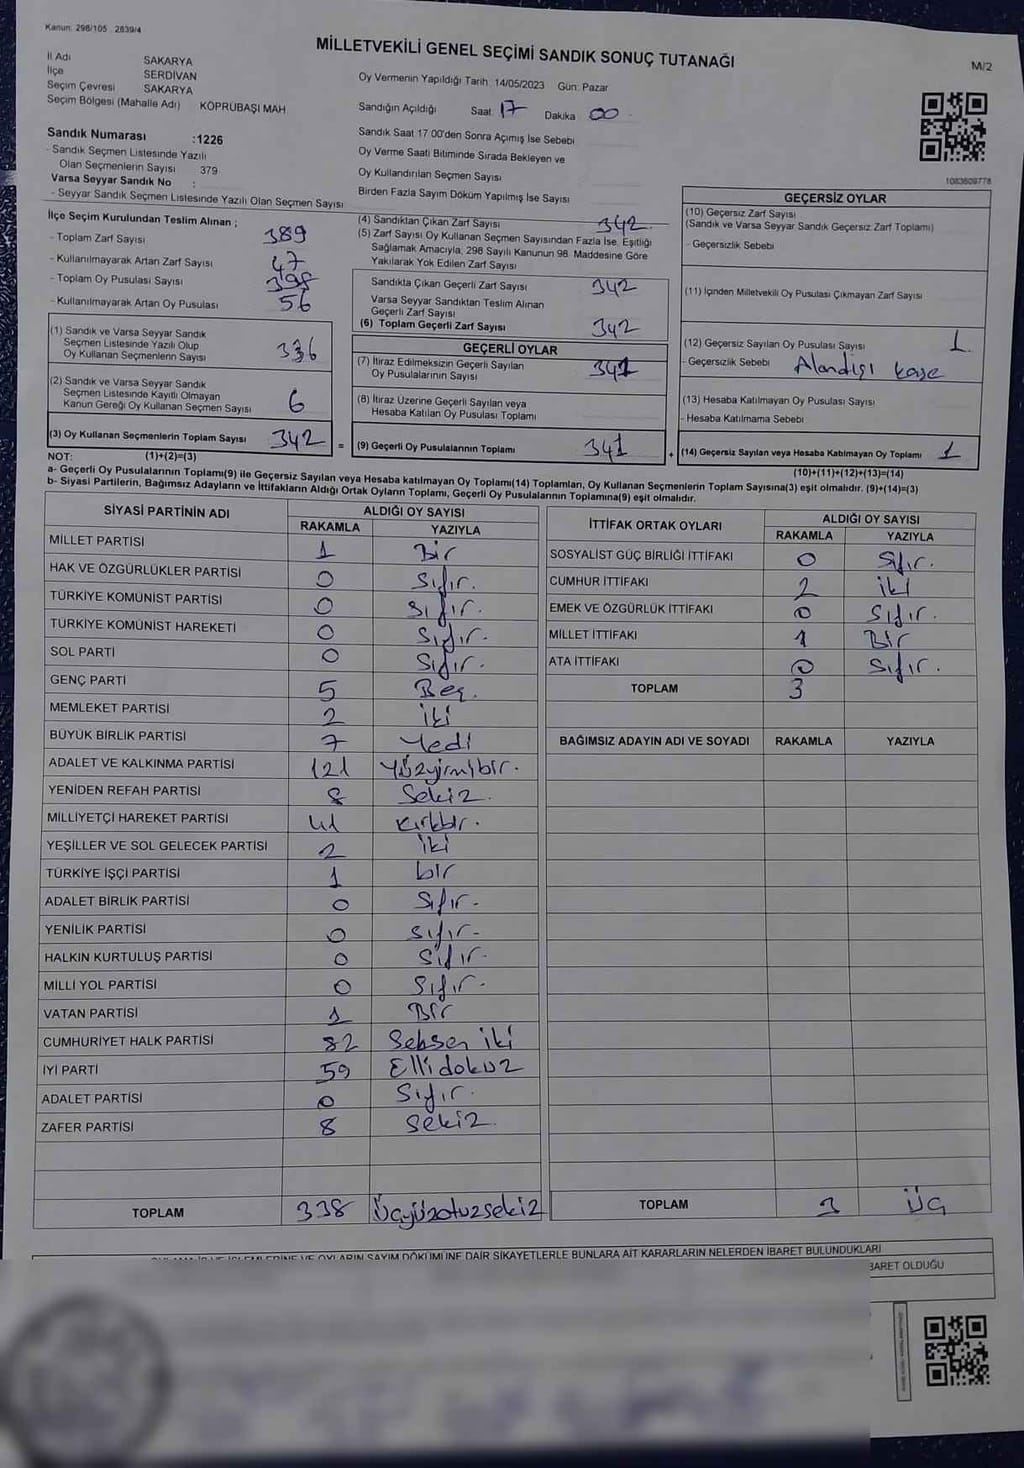 Kanun: 298/105 2839/4
MİLLETVEKİLİ GENEL SEÇİMİ SANDIK SONUÇ TUTANAĞI
M/2
İl Adı SAKARYA
İlçe SERDİVAN
Seçim Çevresi SAKARYA
Seçim Bölgesi (Mahalle Adı) KÖPRÜBAŞI MAH
Sandık Numarası :1226
- Sandık Seçmen Listesinde Yazılı
Olan Seçmenlerin Sayısı 379
Varsa Seyyar Sandık No :
- Seyyar Sandık Seçmen Listesinde Yazılı Olan Seçmen Sayısı
Oy Vermenin Yapıldığı Tarih: 14/05/2023 Gün: Pazar
Sandığın Açıldığı Saat 17 Dakika 00
Sandık Saat 17 00'den Sonra Açımış İse Sebebi
Oy Verme Saati Bitiminde Sırada Bekleyen ve
Oy Kullandırılan Seçmen Sayısı
Birden Fazla Sayım Döküm Yapılmış İse Sayısı
1083609778
İlçe Seçim Kurulundan Teslim Alınan ;
- Toplam Zarf Sayısı 389
- Kullanılmayarak Artan Zarf Sayısı 47
- Toplam Oy Pusulası Sayısı 398
- Kullanılmayarak Artan Oy Pusulası 56
(1) Sandık ve Varsa Seyyar Sandık
Seçmen Listesinde Yazılı Olup
Oy Kullanan Seçmenlerin Sayısı 336
(2) Sandık ve Varsa Seyyar Sandık
Seçmen Listesinde Kayıtlı Olmayan
Kanun Gereği Oy Kullanan Seçmen Sayısı 6
(3) Oy Kullanan Seçmenlerin Toplam Sayısı 342 =
(4) Sandıktan Çıkan Zarf Sayısı 342
(5) Zarf Sayısı Oy Kullanan Seçmen Sayısından Fazla İse, Eşitliği
Sağlamak Amacıyla; 298 Sayılı Kanunun 98. Maddesine Göre
Yakılarak Yok Edilen Zarf Sayısı
Sandıkta Çıkan Geçerli Zarf Sayısı 342
Varsa Seyyar Sandıktan Teslim Alınan
Geçerli Zarf Sayısı
(6) Toplam Geçerli Zarf Sayısı 342
GEÇERLİ OYLAR
(7) İtiraz Edilmeksizin Geçerli Sayılan
Oy Pusulalarının Sayısı 341
(8) İtiraz Üzerine Geçerli Sayılan veya
Hesaba Katılan Oy Pusulası Toplamı
(9) Geçerli Oy Pusulalarının Toplamı 341 +
GEÇERSİZ OYLAR
(10) Geçersiz Zarf Sayısı
(Sandık ve Varsa Seyyar Sandık Geçersiz Zarf Toplamı)
- Geçersizlik Sebebi
(11) İçinden Milletvekili Oy Pusulası Çıkmayan Zarf Sayısı
(12) Geçersiz Sayılan Oy Pusulası Sayısı 1
- Geçersizlik Sebebi
(13) Hesaba Katılmayan Oy Pusulası Sayısı
- Hesaba Katılmama Sebebi
(14) Geçersiz Sayılan veya Hesaba Katılmayan Oy Toplamı 1
NOT: (1)+(2)=(3)
(10)+(11)+(12)+(13)=(14)
a- Geçerli Oy Pusulalarının Toplamı(9) ile Geçersiz Sayılan veya Hesaba katılmayan Oy Toplamı(14) Toplamları, Oy Kullanan Seçmenlerin Toplam Sayısına(3) eşit olmalıdır. (9)+(14)=(3)
b- Siyasi Partilerin, Bağımsız Adayların ve İttifakların Aldığı Ortak Oyların Toplamı, Geçerli Oy Pusulalarının Toplamına(9) eşit olmalıdır.
SİYASİ PARTİNİN ADI ALDIĞI OY SAYISI
RAKAMLA YAZIYLA
MİLLET PARTİSİ 1 Bir
HAK VE ÖZGÜRLÜKLER PARTİSİ 0 Sıfır.
TÜRKİYE KOMÜNİST PARTİSİ 0 Sıfır.
TÜRKİYE KOMÜNİST HAREKETİ 0 Sıfır.
SOL PARTİ 0 Sıfır.
GENÇ PARTİ 5 Beş.
MEMLEKET PARTİSİ 2 iki
BÜYÜK BİRLİK PARTİSİ 7 Yedi
ADALET VE KALKINMA PARTİSİ 121 Yüzyirmibir.
YENİDEN REFAH PARTİSİ 8 Sekiz.
MİLLİYETÇİ HAREKET PARTİSİ 41 Kırkbir.
YEŞİLLER VE SOL GELECEK PARTİSİ 2 iki
TÜRKİYE İŞÇİ PARTİSİ 1 bir
ADALET BİRLİK PARTİSİ 0 Sıfır.
YENİLİK PARTİSİ 0 Sıfır.
HALKIN KURTULUŞ PARTİSİ 0 Sıfır.
MİLLİ YOL PARTİSİ 0 Sıfır.
VATAN PARTİSİ 1 Bir
CUMHURİYET HALK PARTİSİ 82 Seksen iki
İYİ PARTİ 59 Elli dokuz
ADALET PARTİSİ 0 Sıfır.
ZAFER PARTİSİ 8 Sekiz.
TOPLAM 338 Üçyüzotuzsekiz
İTTİFAK ORTAK OYLARI ALDIĞI OY SAYISI
RAKAMLA YAZIYLA
SOSYALİST GÜÇ BİRLİĞİ İTTİFAKI 0 Sıfır.
CUMHUR İTTİFAKI 2 iki
EMEK VE ÖZGÜRLÜK İTTİFAKI 0 Sıfır.
MİLLET İTTİFAKI 1 Bir
ATA İTTİFAKI 0 Sıfır.
TOPLAM 3
BAĞIMSIZ ADAYIN ADI VE SOYADI RAKAMLA YAZIYLA
TOPLAM 3 Üç
OYLARIN SAYIM DÖKÜMÜNE DAİR ŞİKAYETLERLE BUNLARA AİT KARARLARIN NELERDEN İBARET BULUNDUKLARI
İBARET OLDUĞU